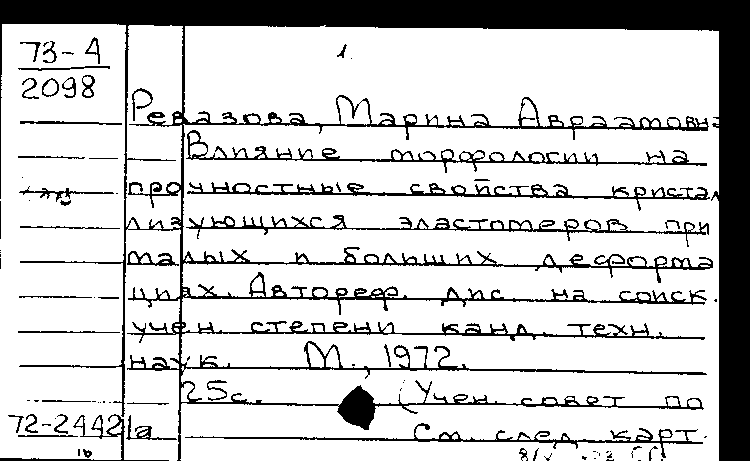 73-А
2098
1.
Ревазова, Марина Авраамовна
Влияние морфологии на
прочностные свойства кристал
лизующихся эластомеров при
малых и больших деформа
циях. Автореф. дис. на соиск.
учен. степени канд. техн.
наук. М., 1972.
25с. (Учен. совет по
72-24421а См. след. карт.
16